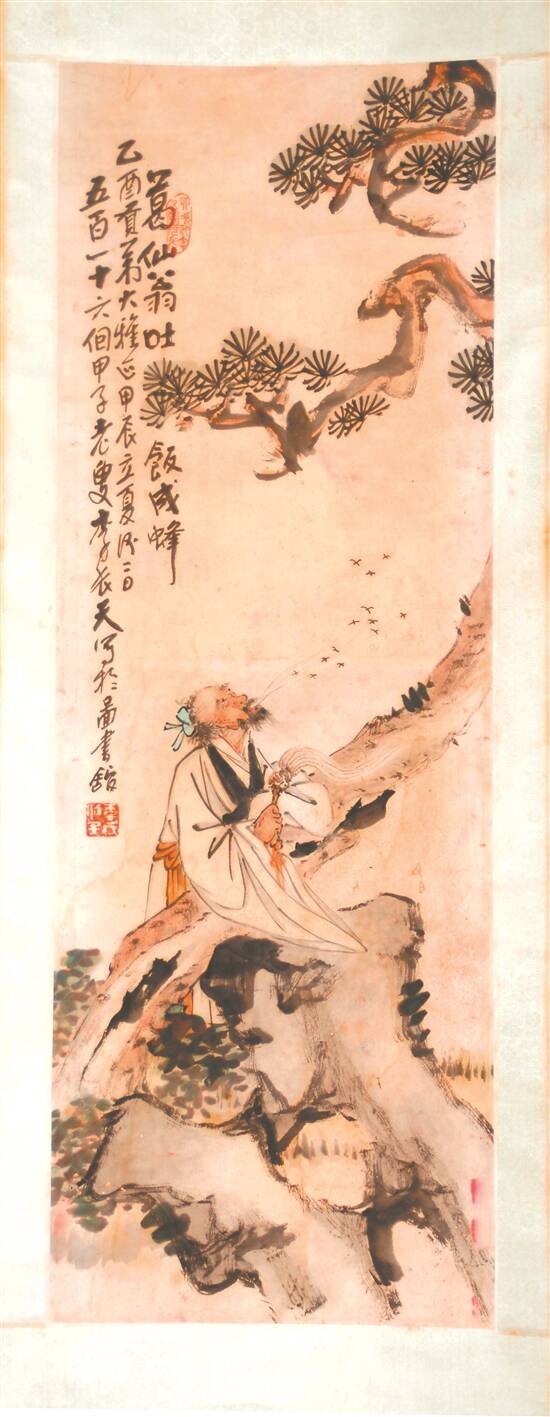 葛仙翁吐飯成蜂
乙酉貢弟大雅正甲辰立夏後二日
五百一十六個甲子老叟李丹忱天寫於圖書館